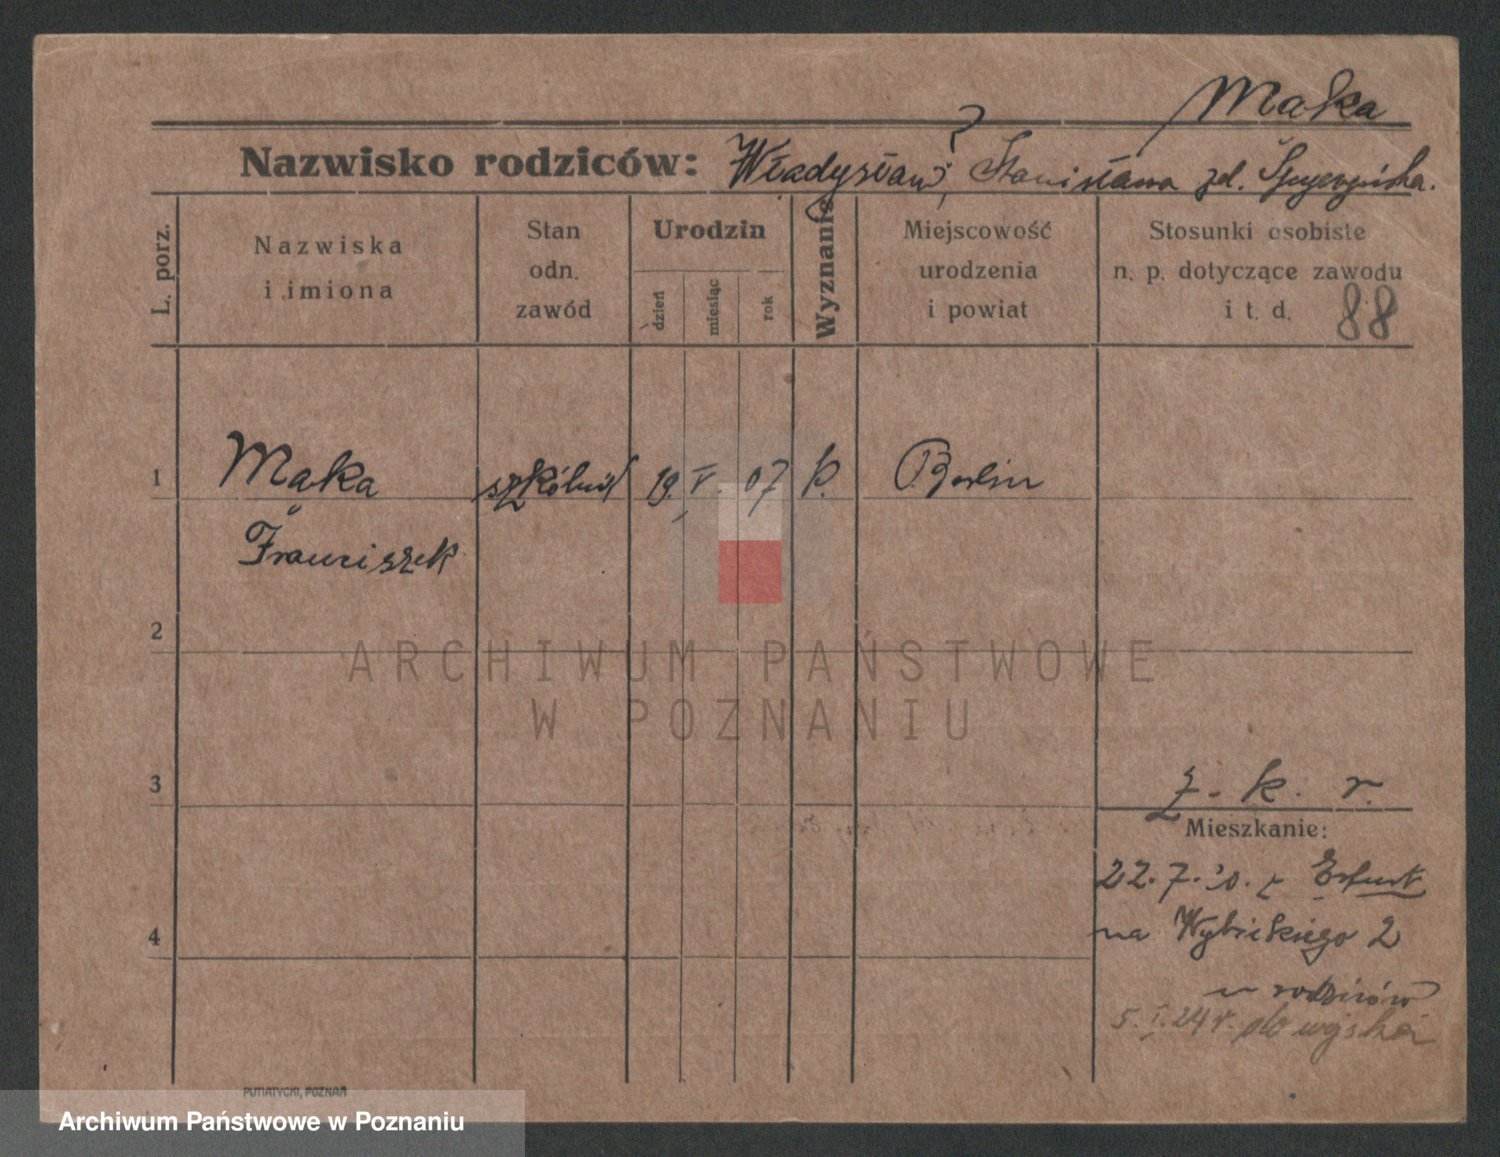 Maka
Nazwisko rodziców: Władysław, Stanisława zd.
L. porz.
Nazwiska
i imiona
Stan
odn.
zawód
Urodzin
dzień
miesiąc
rok
Wyznanie
Miejscowość
urodzenia
i powiat
Stosunki osobiste
n. p. dotyczące zawodu
i t. d. 88
1 Mąka 19 V. 07 k. Berlin
Franciszek
2
ARCHIWUM PAŃSTWOWE
W POZNANIU
3
ż. k. r.
Mieszkanie:
22. 7. z Erfurt
4
na Wybickiego 2
u rodziców
5. I. 24 r. do wojska
PUTIATYCKI, POZNAŃ
Archiwum Państwowe w Poznaniu